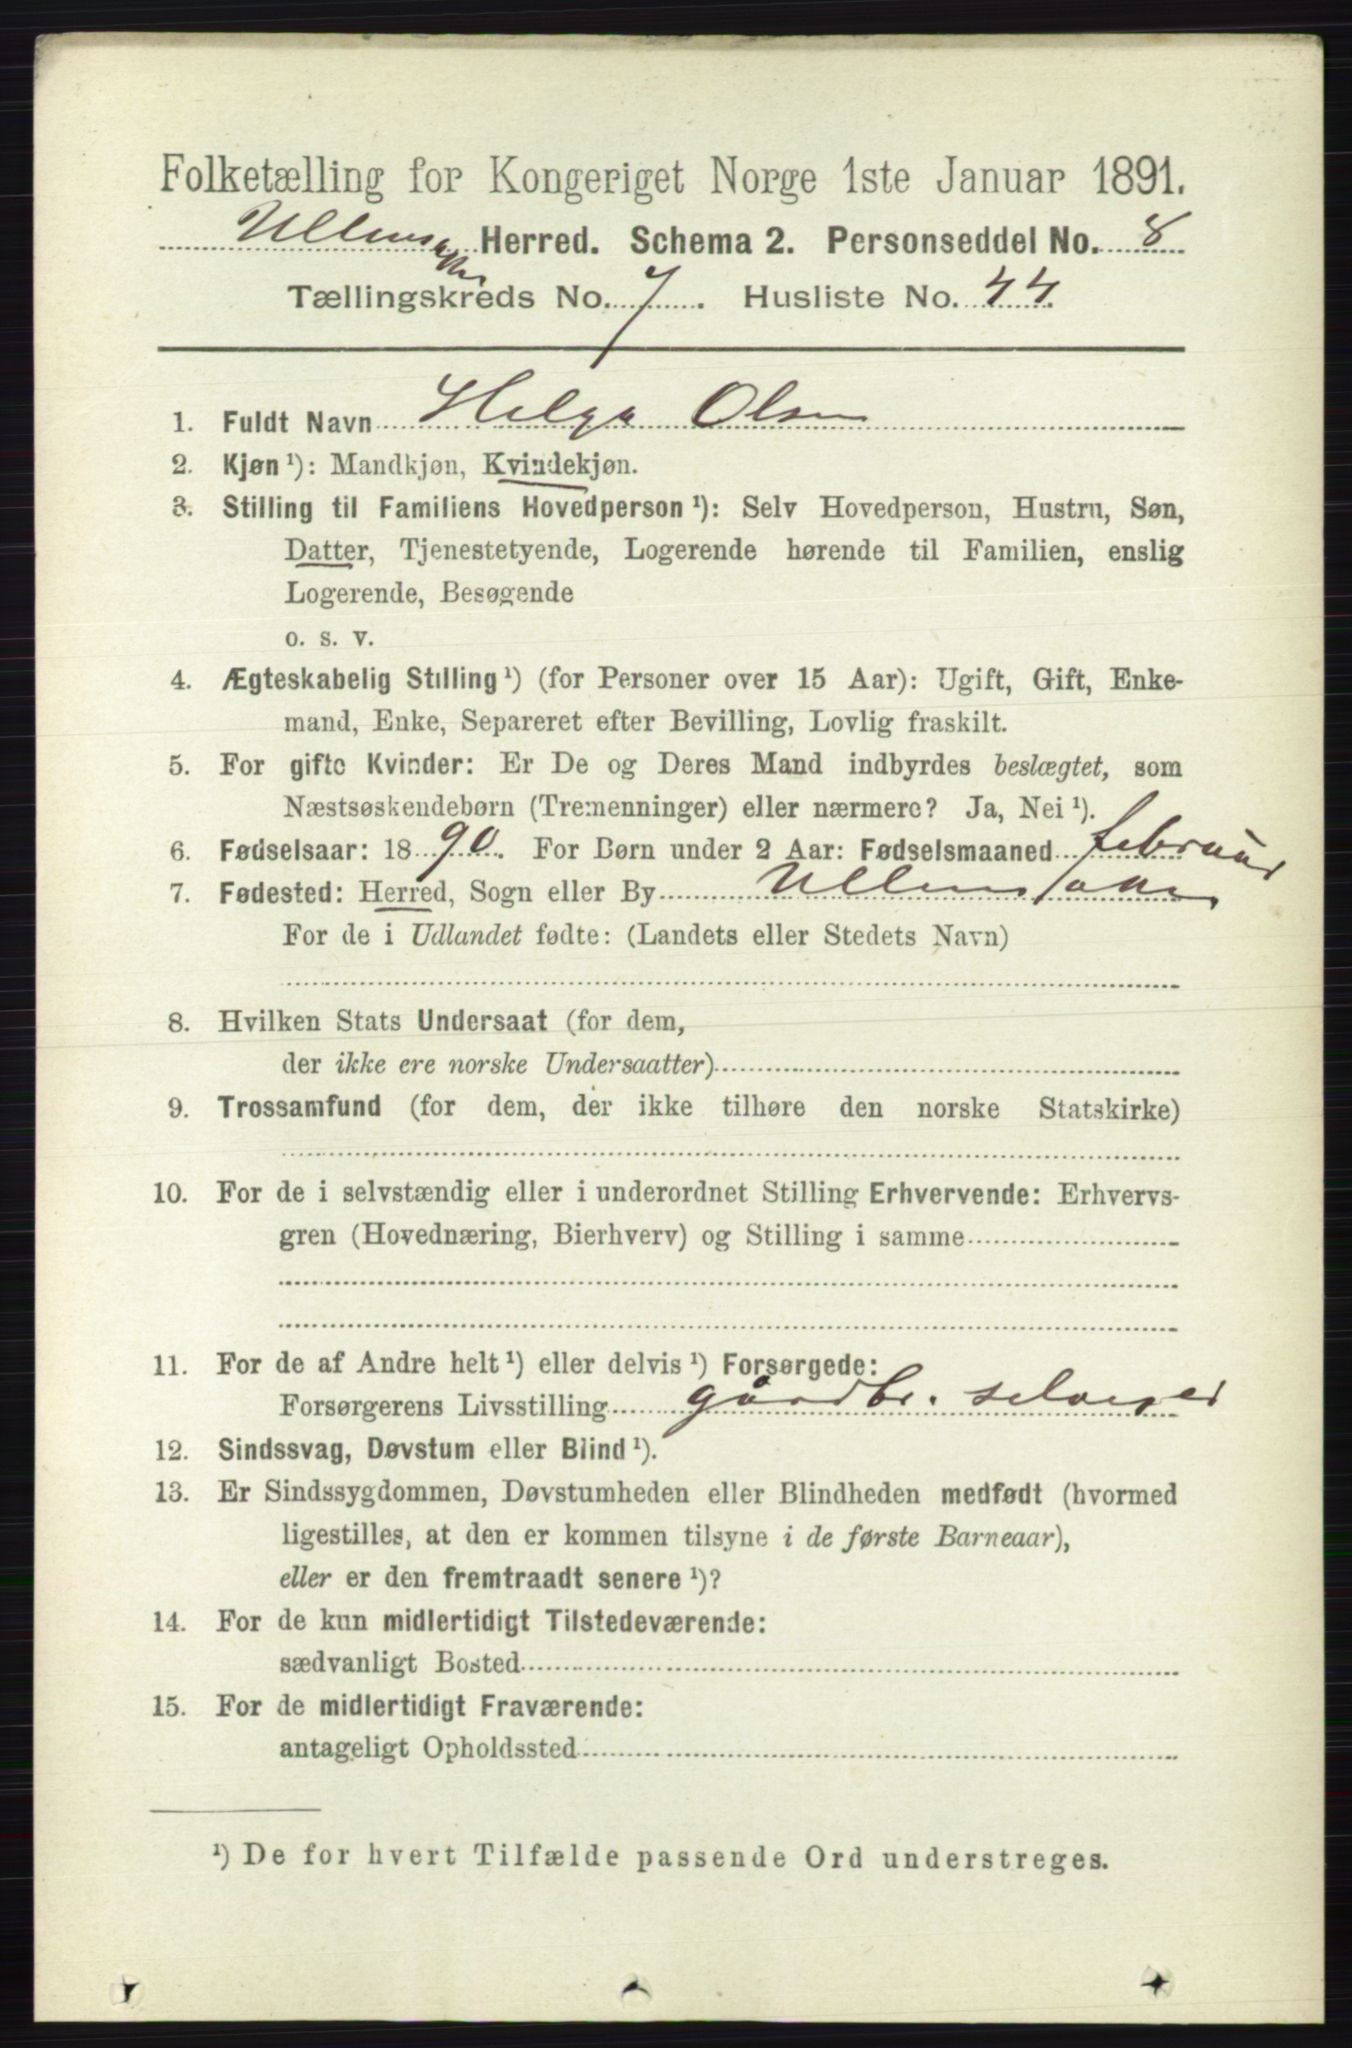 Folketælling for Kongeriget Norge 1ste Januar 1891.
Ullensaker Herred. Schema 2. Personseddel No. 8
Tællingskreds No. 7. Husliste No. 44
1. Fuldt Navn Helga Olsen
2. Kjøn ¹): Mandkjøn, Kvindekjøn.
3. Stilling til Familiens Hovedperson ¹): Selv Hovedperson, Hustru, Søn,
Datter, Tjenestetyende, Logerende hørende til Familien, enslig
Logerende, Besøgende
o. s. v.
4. Ægteskabelig Stilling ¹) (for Personer over 15 Aar): Ugift, Gift, Enke-
mand, Enke, Separeret efter Bevilling, Lovlig fraskilt.
5. For gifte Kvinder: Er De og Deres Mand indbyrdes beslægtet, som
Næstsøskendebørn (Tremenninger) eller nærmere? Ja, Nei ¹).
6. Fødselsaar: 1890. For Børn under 2 Aar: Fødselsmaaned februar
7. Fødested: Herred, Sogn eller By Ullensaker
For de i Udlandet fødte: (Landets eller Stedets Navn)
8. Hvilken Stats Undersaat (for dem,
der ikke ere norske Undersaatter)
9. Trossamfund (for dem, der ikke tilhøre den norske Statskirke)
10. For de i selvstændig eller i underordnet Stilling Erhvervende: Erhvervs-
gren (Hovednæring, Bierhverv) og Stilling i samme
11. For de af Andre helt ¹) eller delvis ¹) Forsørgede:
Forsørgerens Livsstilling gårdbr. selveier
12. Sindssvag, Døvstum eller Blind ¹).
13. Er Sindssygdommen, Døvstumheden eller Blindheden medfødt (hvormed
ligestilles, at den er kommen tilsyne i de første Barneaar),
eller er den fremtraadt senere ¹)?
14. For de kun midlertidigt Tilstedeværende:
sædvanligt Bosted
15. For de midlertidigt Fraværende:
antageligt Opholdssted
¹) De for hvert Tilfælde passende Ord understreges.